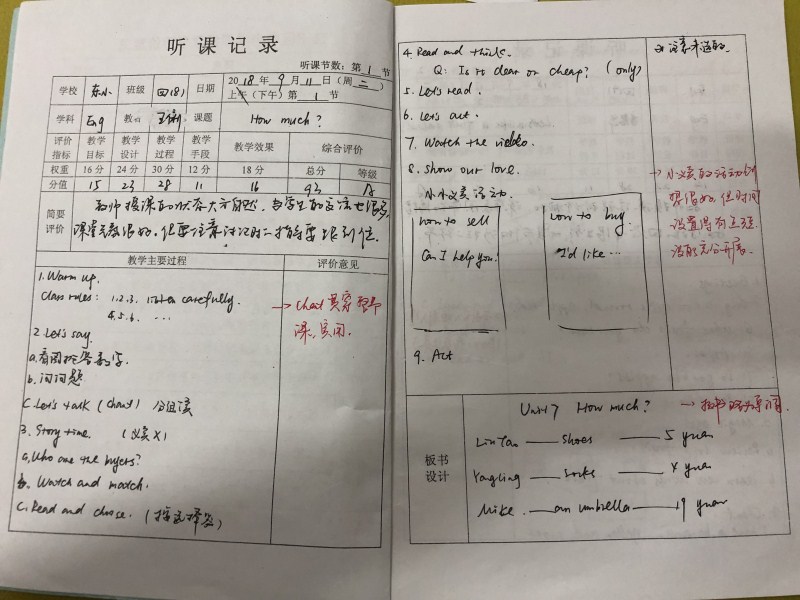 听课记录
听课节数：第 1 节
学校 东小 班级 四(8) 日期 2018年9月11日（周二）
上午（下午）第 1 节
学科 Eng 教师 课题 How much?
评价指标 教学目标 教学设计 教学过程 教学手段 教学效果 综合评价
权重 16分 24分 30分 12分 18分 总分 等级
分值 15 23 28 11 16 93 A
简要评价 教师授课的状态大方自然，与学生的交流也很多，
课堂 很好，但要注意 时 要 到位。
教学主要过程 评价意见
1. Warm up.
Class rules: 1.2.3. listen carefully.
4.5.6. ...
→ Chant 贯穿整节
课，实用。
2. Let's say.
a. 看图 数字.
b. 问问题
C. Let's talk (Chant) 分组读
3. Story time. (义卖X)
a. Who are the buyers?
b. Watch and match.
C. Read and choose. (选择 )
4. Read and think.
Q: Is it clear or cheap? (only)
5. Let's read.
6. Let's act.
7. Watch the video.
8. Show our love.
小小义卖活动.
how to sell
Can I help you?
how to buy.
I'd like ...
→ 小义卖的活动创
想很好，但时间
设置得有点短
没能充分开展.
9. Act
板书设计
Unit 7 How much? → 板书
Lin Tao —— shoes —— 5 yuan
Yangling —— socks —— 4 yuan
Mike. —— an umbrella —— 19 yuan